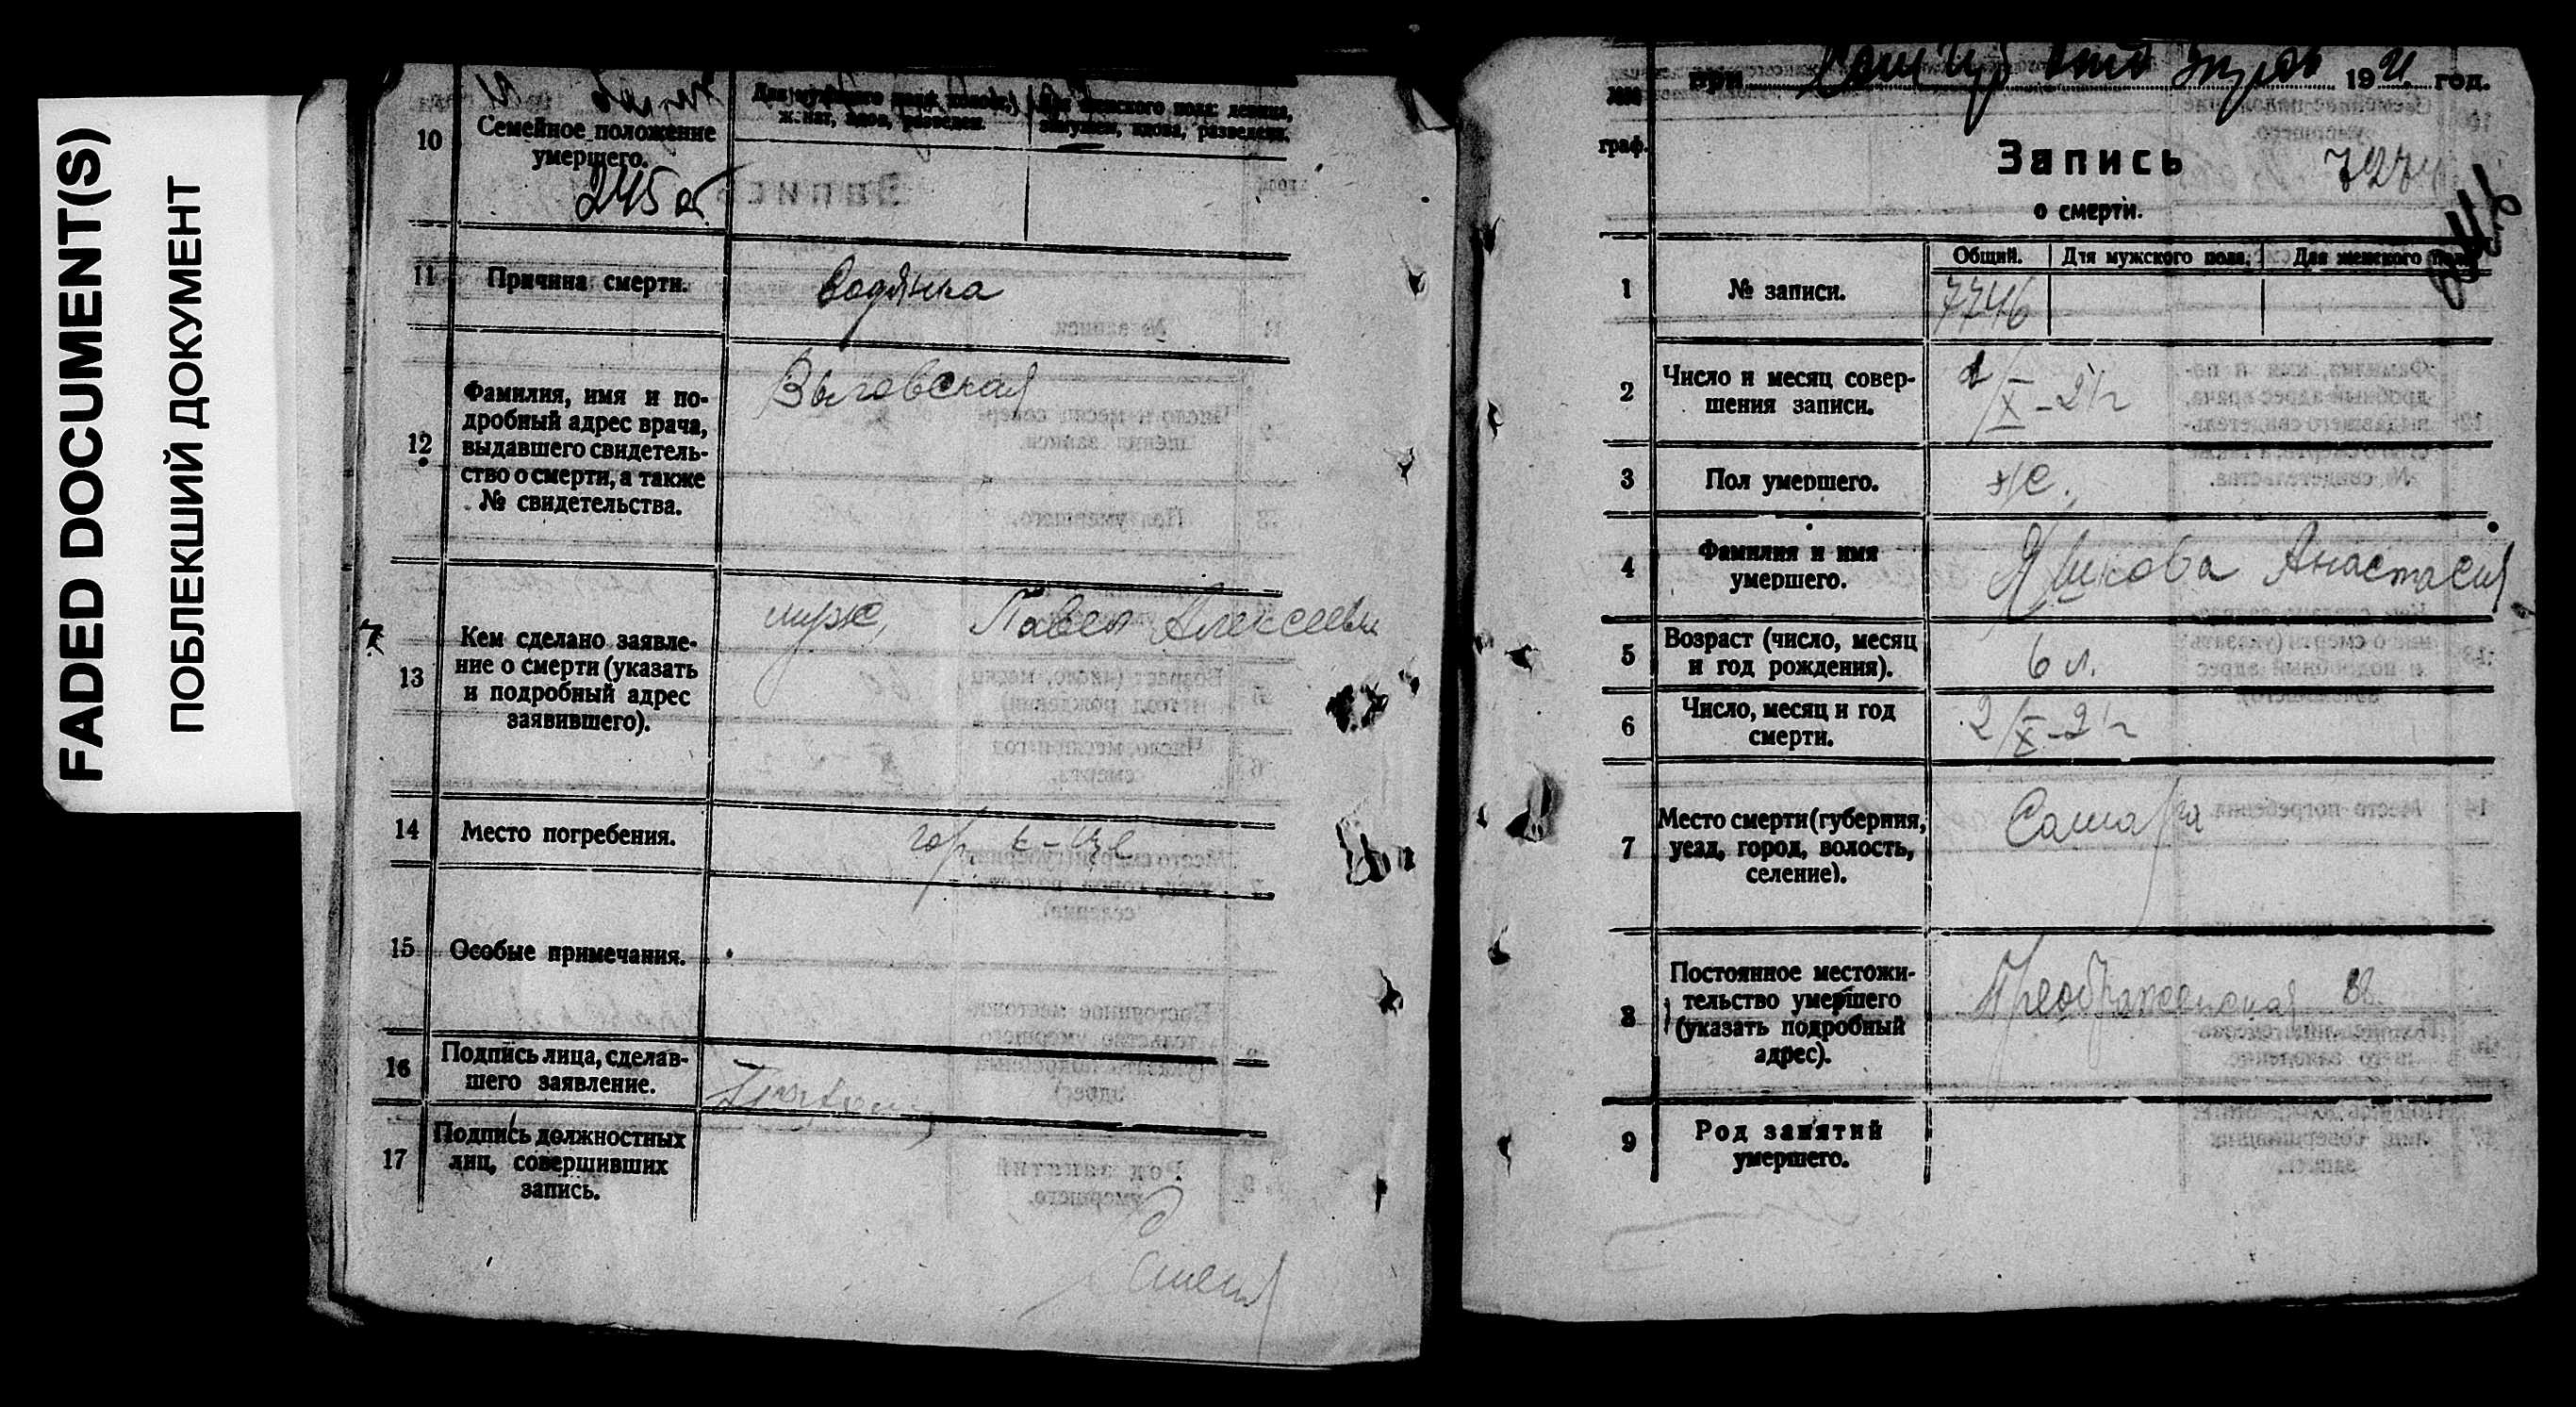 FADED DOCUMENT(S)
ПОБЛЕКШИЙ ДОКУМЕНТ
10
Семейное положение
умершего.
245 об
ж:нат, вдов, разведен.
замужем, вдова, разведена.
11
Причина смерти.
Водянка
12
Фамилия, имя и по-
дробный адрес врача,
выдавшего свидетель-
ство о смерти, а также
№ свидетельства.
Выговская
13
Кем сделано заявле-
ние о смерти (указать
и подробный адрес
заявившего).
муж, Павел Алексеевич
14
Место погребения.
гор. к-ще
15
Особые примечания.
16
Подпись лица, сделав-
шего заявление.
17
Подпись должностных
лиц, совершивших
запись.
при 1921 год.
№№
граф.
Запись
о смерти.
727
Общий. Для мужского пола. Для женского пола.
1
№ записи.
7746
2
Число и месяц совер-
шения записи.
/X-21 г
3
Пол умершего.
ж.
4
Фамилия и имя
умершего.
Яшкова Анастасия
5
Возраст (число, месяц
и год рождения).
6 л.
6
Число, месяц и год
смерти.
2/X-21 г
7
Место смерти (губерния,
уезд, город, волость,
селение).
Самара
8
Постоянное местожи-
тельство умершего
(указать подробный
адрес).
Преображенская 82
9
Род занятий
умершего.